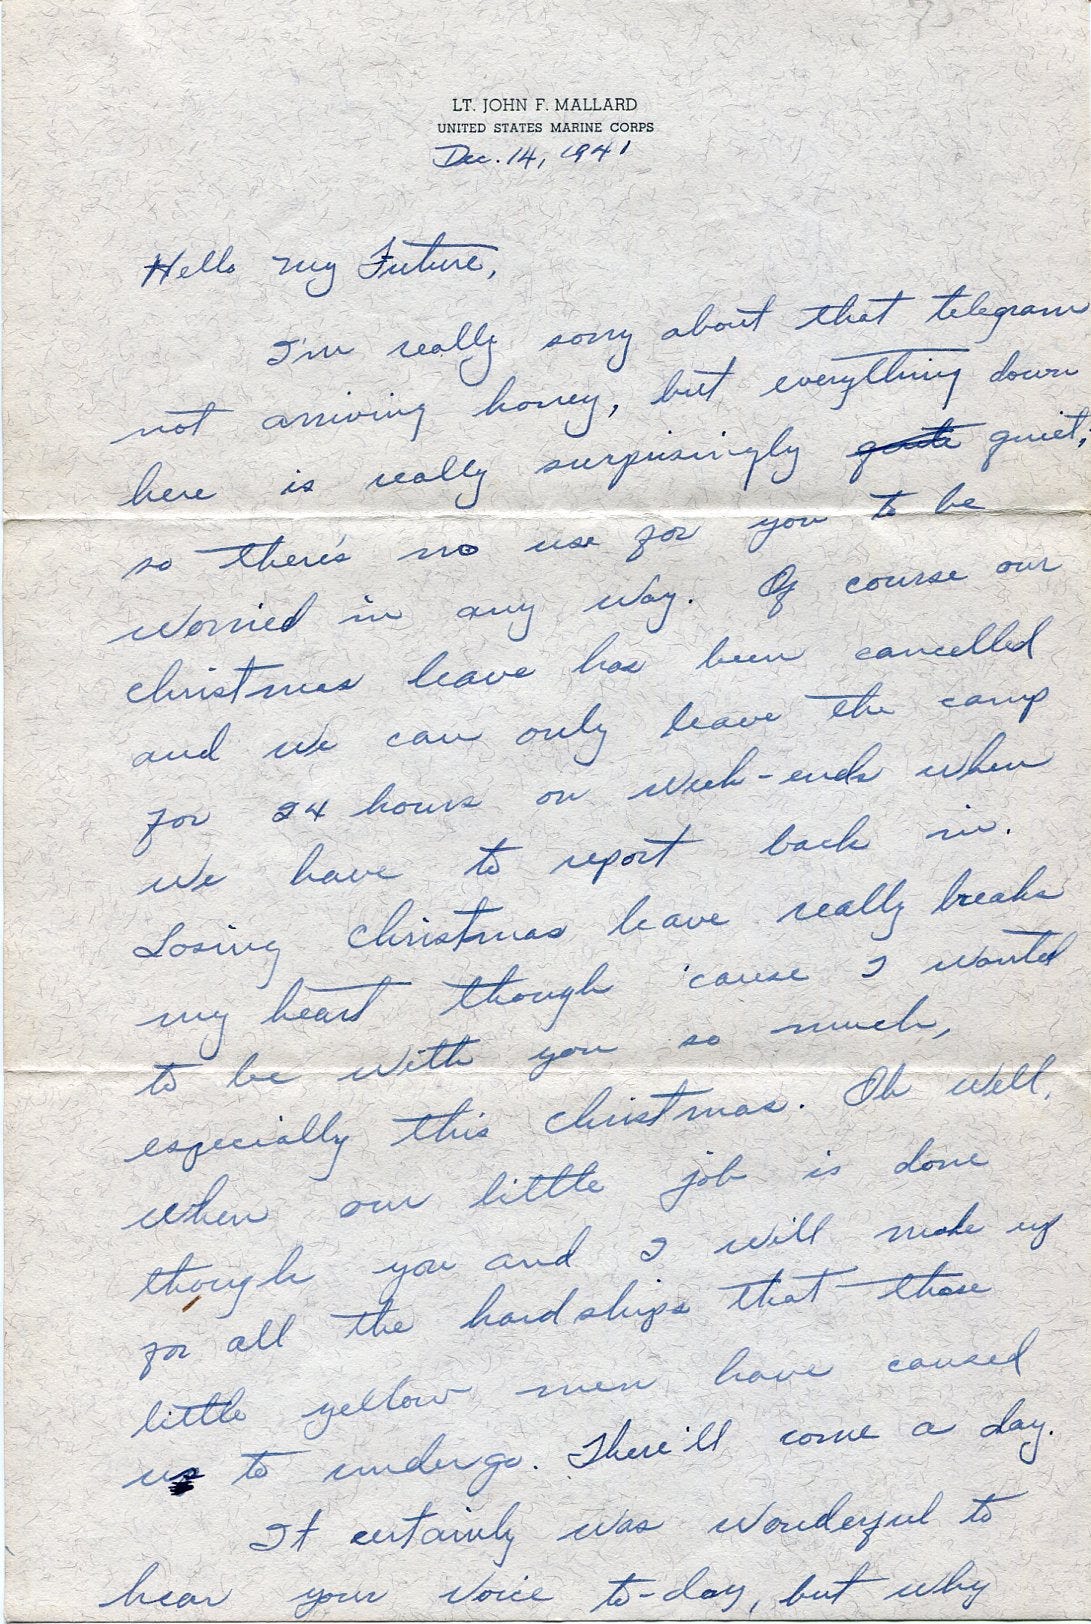 LT. JOHN F. MALLARD
UNITED STATES MARINE CORPS
Dec. 14, 1941
Hello My Future,
I'm really sorry about that telegram
not arriving honey, but everything down
here is really surprisingly quite quiet,
so there's no use for you to be
worried in any way. Of course our
christmas leave has been cancelled
and we can only leave the camp
for 24 hours on week-ends when
we have to report back in.
Losing christmas leave really breaks
my heart though 'cause I wanted
to be with you so much,
especially this christmas. Oh well,
when our little job is done
though you and I will make up
for all the hardships that those
little yellow men have caused
us to undergo. There'll come a day.
It certainly was wonderful to
hear your voice to-day, but why